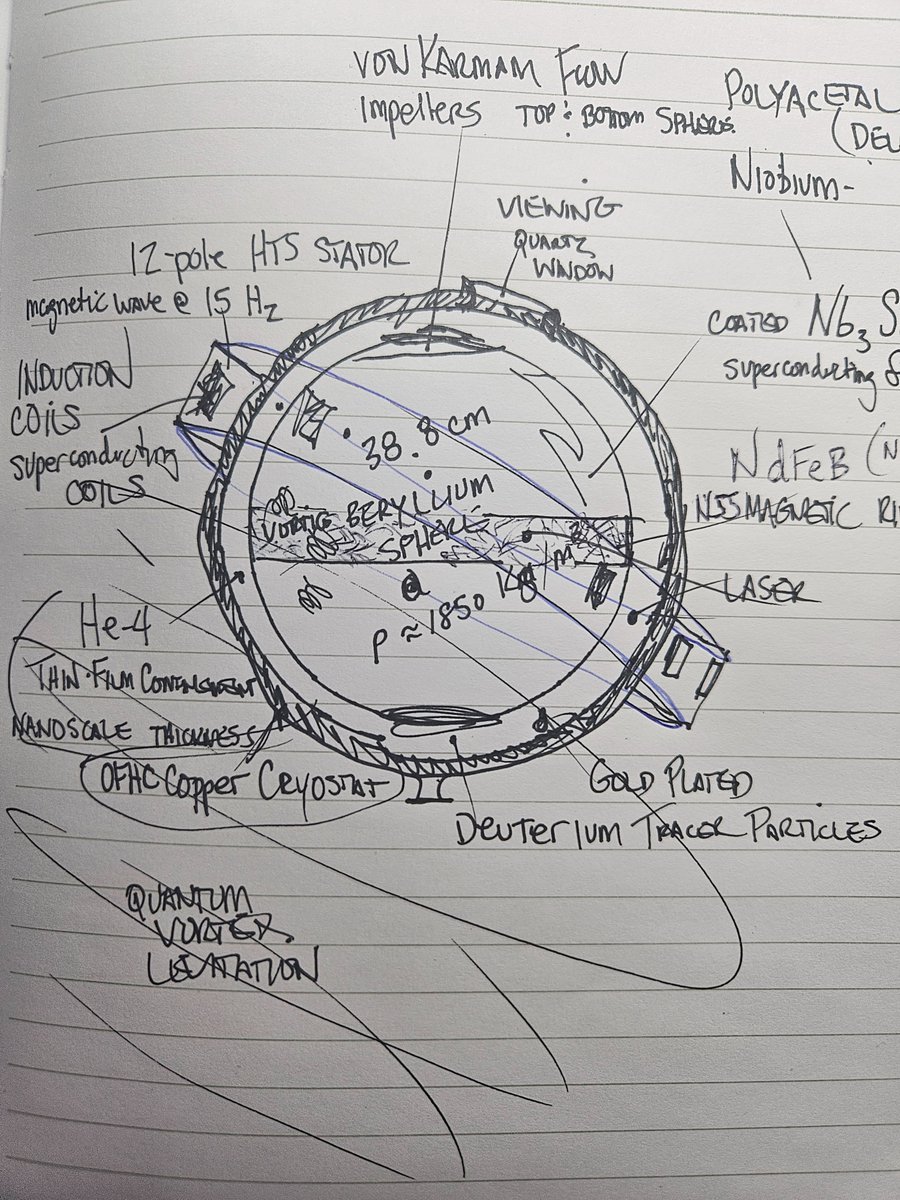 VON KARMAM FLOW
Impellers TOP & BOTTOM SPHERE.
POLYACETAL
(DEL
Niobium-
VIEWING
QUARTZ
WINDOW
12-pole HTS STATOR
magnetic wave @ 15 Hz
INDUCTION
COILS
superconducting
COILS
COATED Nb3 S
superconducting
38.8 cm
BERYLLIUM
SPHERE
VORTICE
@
ρ ≈ 1850 Kg/m3
NdFeB (N
N55 MAGNETIC RI
LASER
He-4
THIN-FILM CONTAINMENT
NANOSCALE THICKNESS
OFHC Copper CRYOSTAT
GOLD PLATED
DEUTERIUM TRACER PARTICLES
QUANTUM
VORTEX
LEVITATION